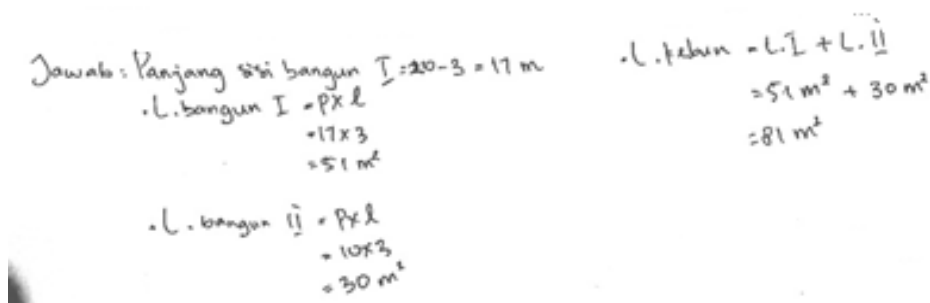 Jawab : Panjang sisi bangun I = 20 - 3 = 17 m
. L. bangun I = p x l
= 17 x 3
= 51 m²
. L. bangun ii = p x l
= 10 x 3
= 30 m²
. L. kebun = L. I + L. ii
= 51 m² + 30 m²
= 81 m²